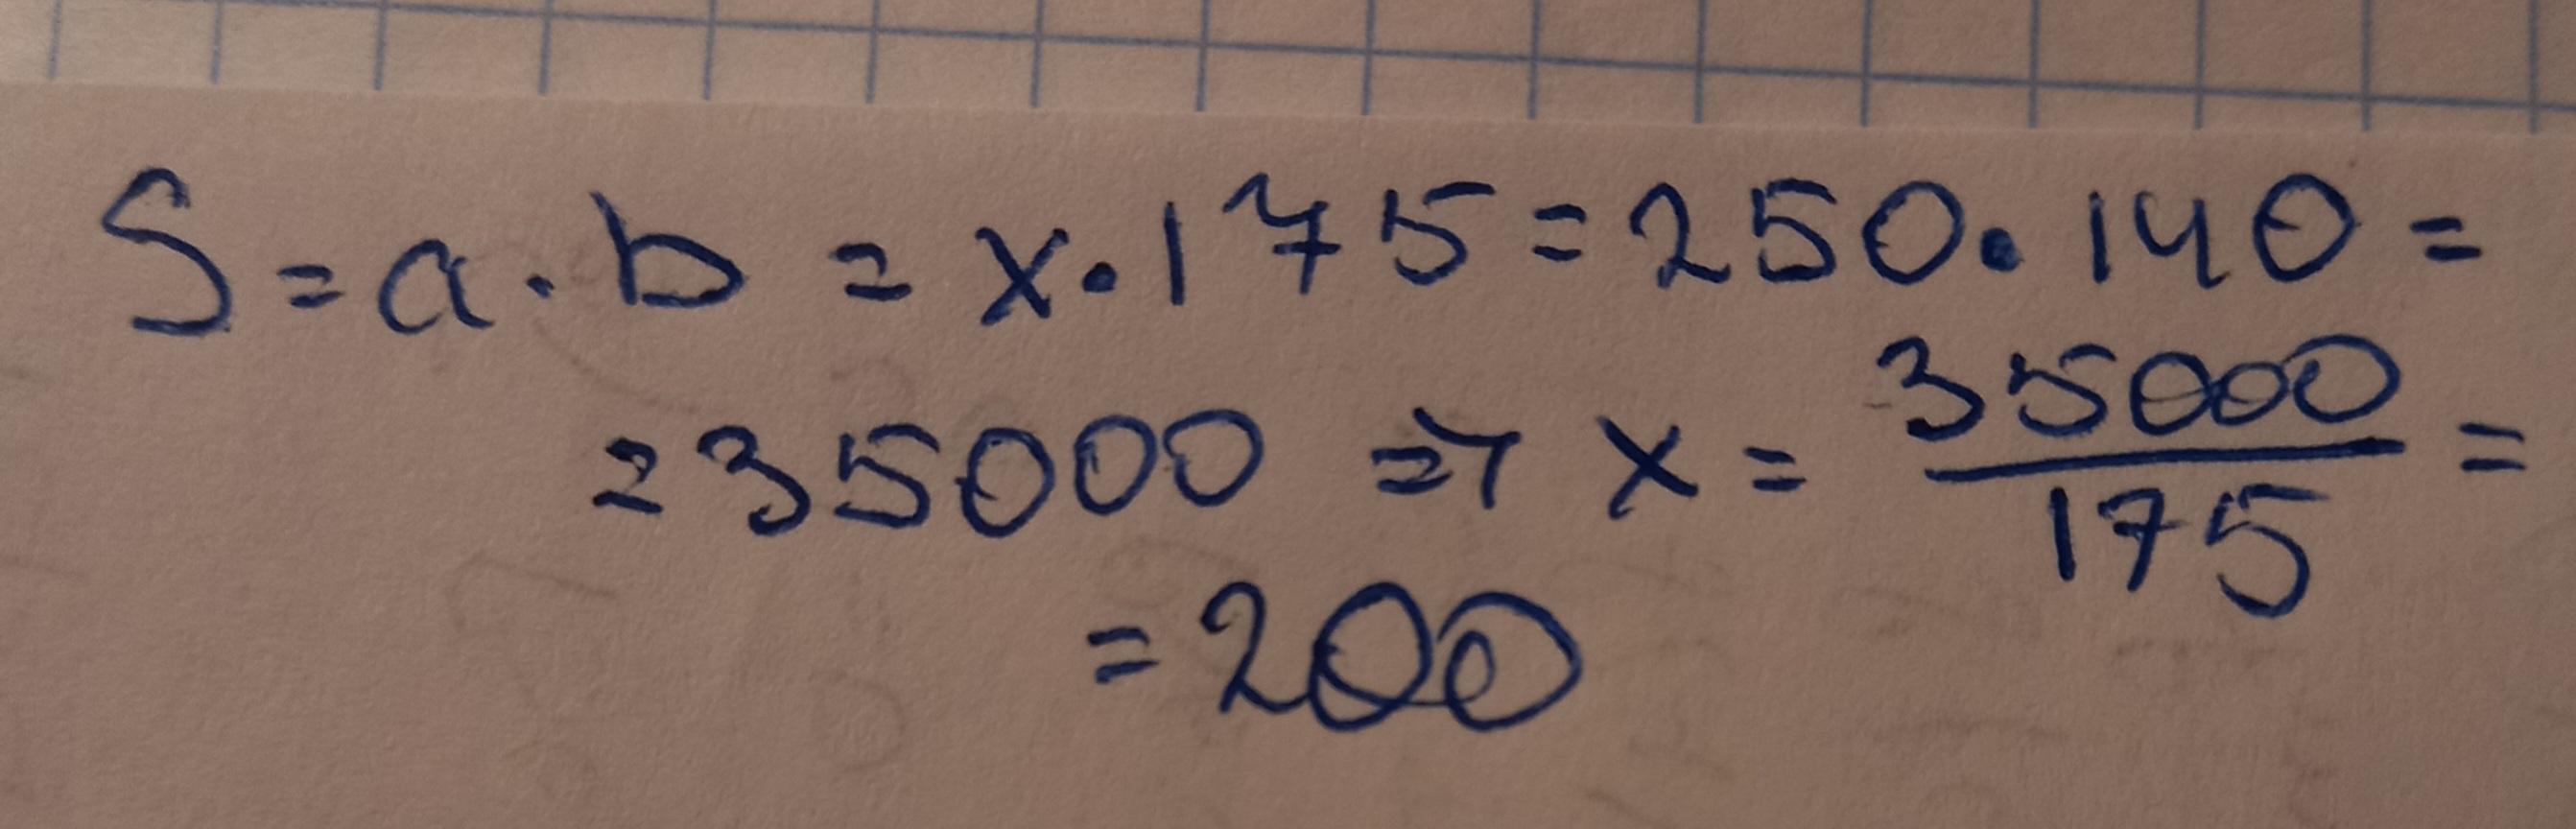 S = a · b = x · 175 = 250 · 140 =
= 35000 ⇒ x = 35000/175 =
= 200